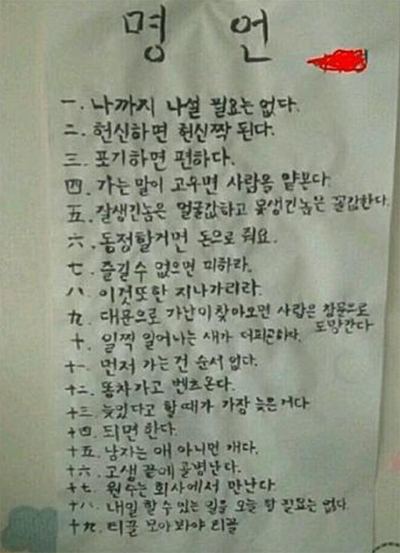 명 언
一. 나까지 나설 필요는 없다.
二. 헌신하면 헌신짝 된다.
三. 포기하면 편하다.
四. 가는 말이 고우면 사람을 얕본다.
五. 잘생긴놈은 얼굴값하고 못생긴놈은 꼴값한다.
六. 동정할거면 돈으로 줘요.
七. 즐길수 없으면 피하라.
八. 이것또한 지나가리라.
九. 대문으로 가난이찾아오면 사랑은 창문으로
도망간다
十. 일찍 일어나는 새가 더피곤하다.
十一. 먼저 가는건 순서 없다.
十二. 똥차가고 벤츠온다.
十三. 늦었다고 할때가 가장 늦은거다.
十四. 되면 한다.
十五. 남자는 애 아니면 개다.
十六. 고생 끝에 골병난다.
十七. 원수는 회사에서 만난다.
十八. 내일 할 수 있는 일을 오늘 할 필요는 없다.
十九. 티끌 모아봐야 티끌